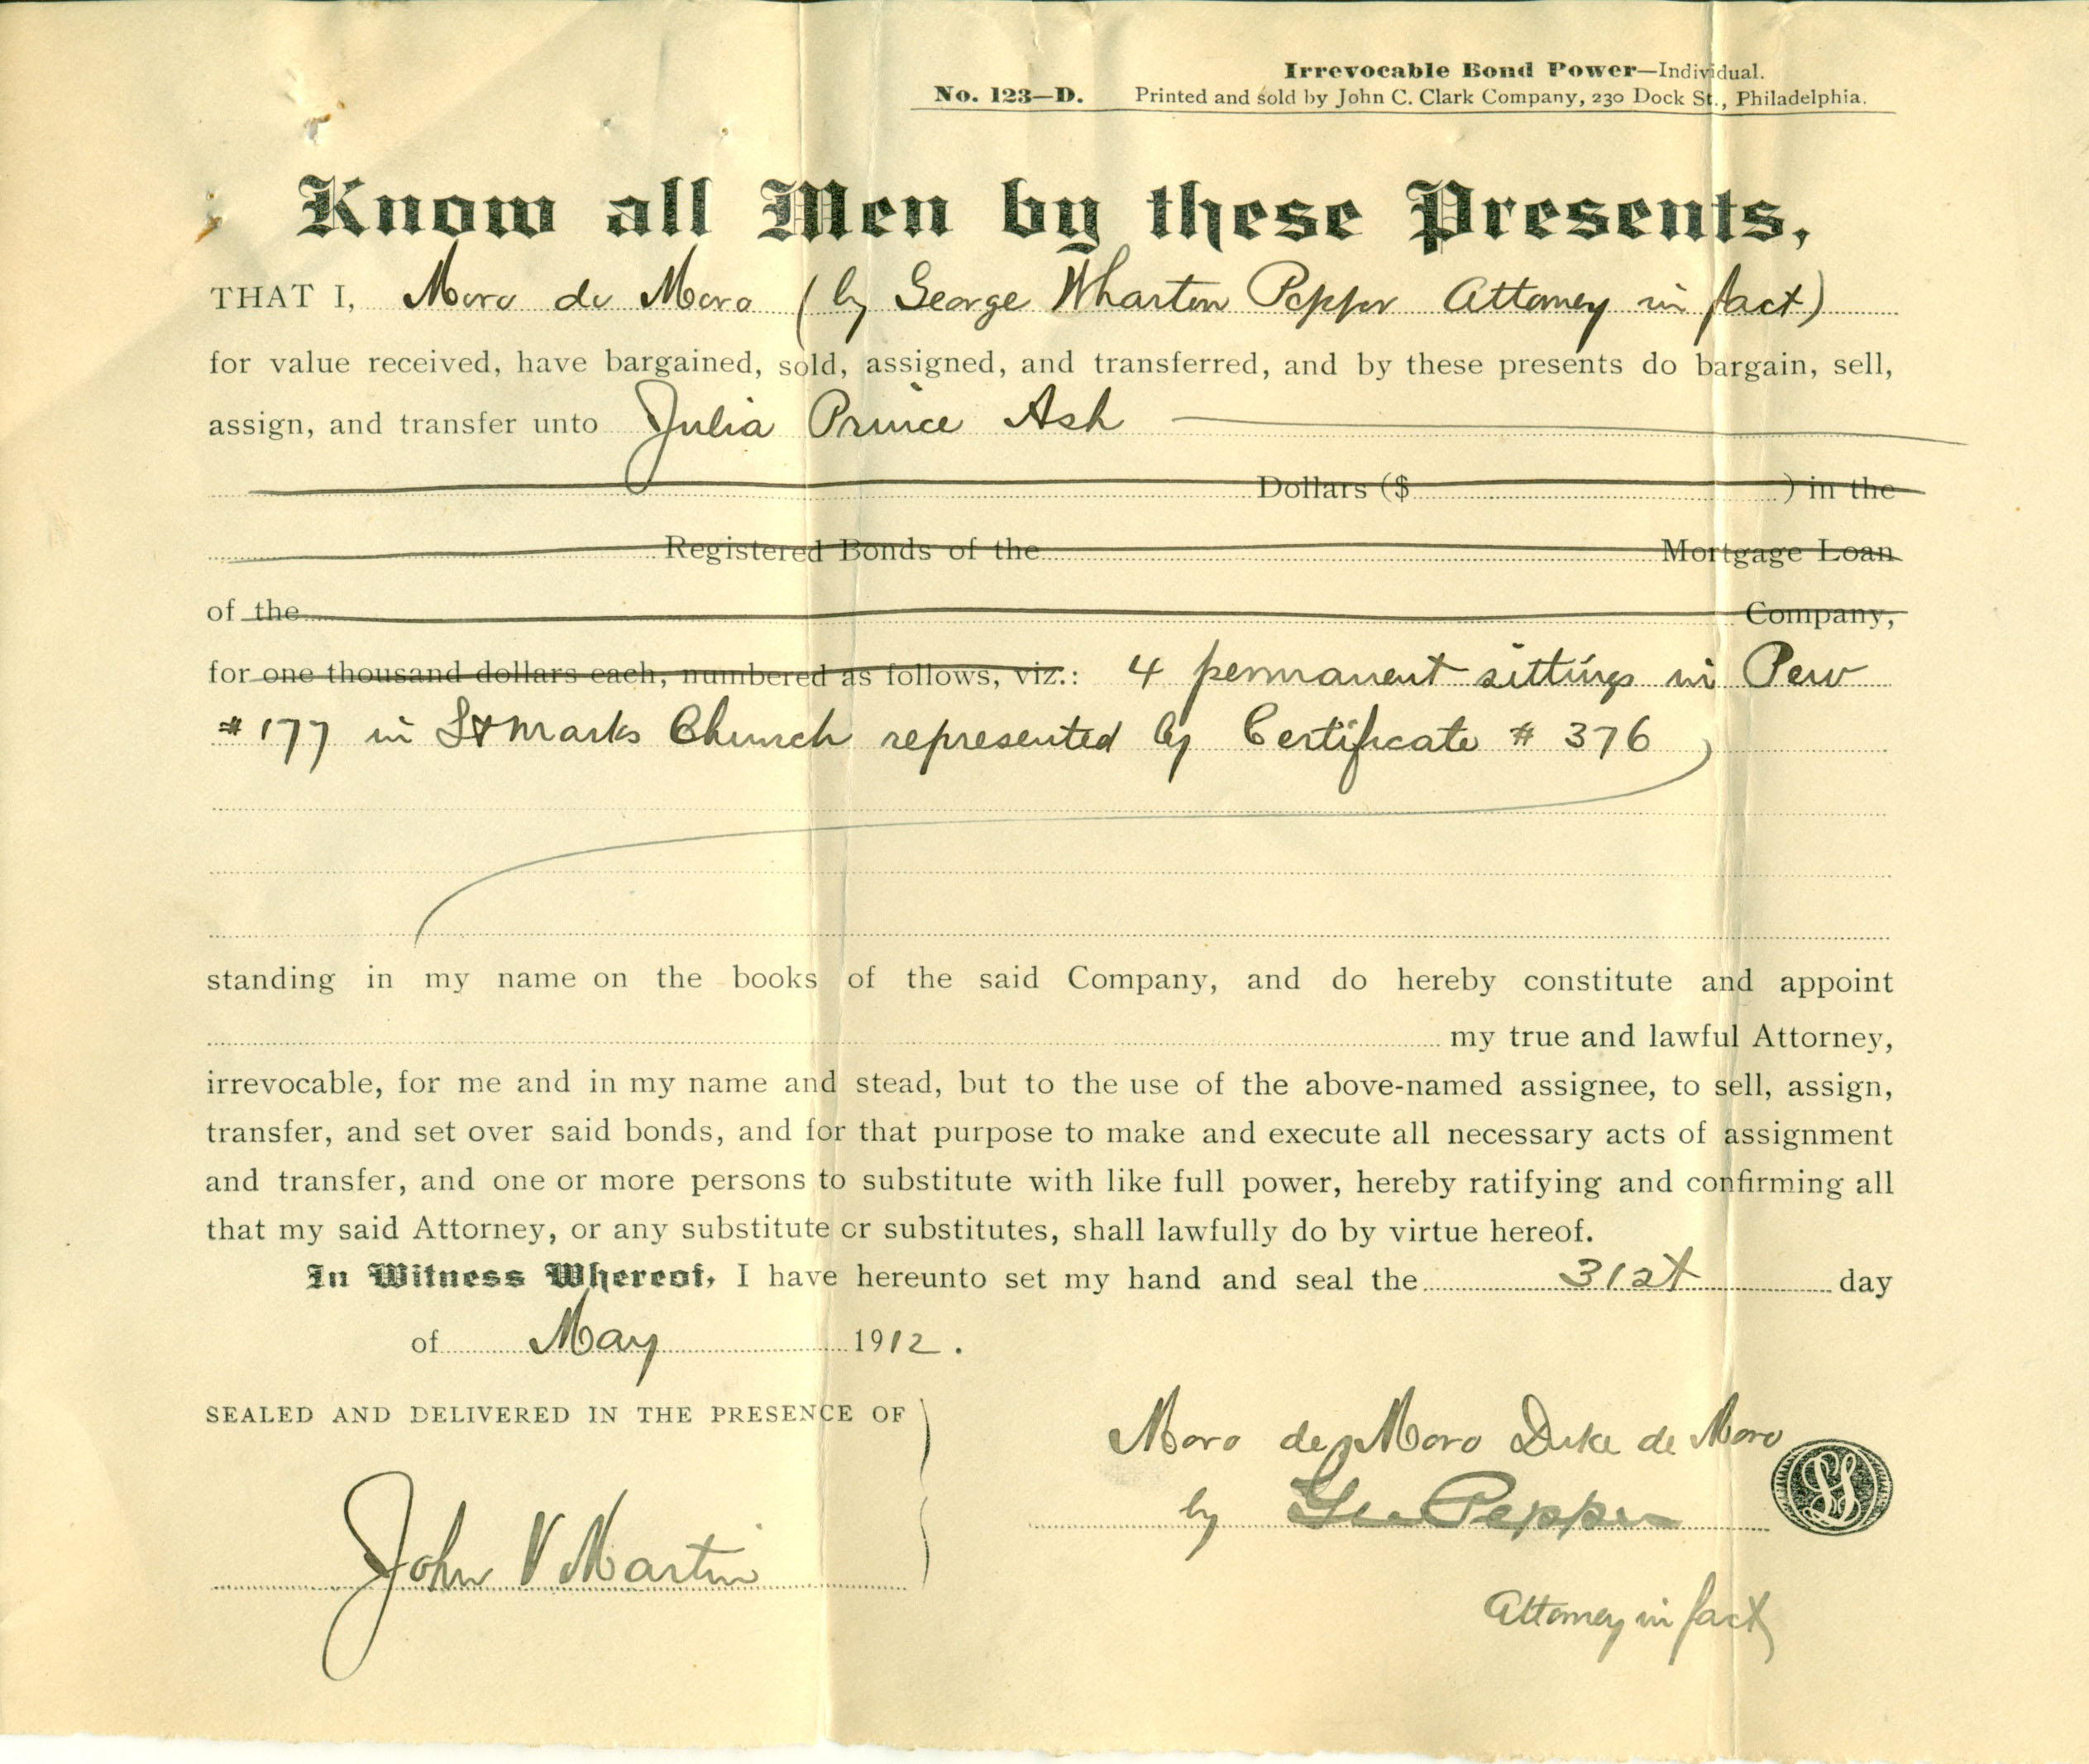 Irrevocable Bond Power—Individual.
No. 123—D. Printed and sold by John C. Clark Company, 230 Dock St., Philadelphia.
Know all Men by these Presents,
THAT I, Moro de Moro (by George Wharton Pepper Attorney in fact)
for value received, have bargained, sold, assigned, and transferred, and by these presents do bargain, sell,
assign, and transfer unto Julia Prince Ash
Dollars ($ ) in the
Registered Bonds of the Mortgage Loan
of the Company,
for one thousand dollars each, numbered as follows, viz.: 4 permanent sittings in Pew
#177 in St Marks Church represented by Certificate # 376
standing in my name on the books of the said Company, and do hereby constitute and appoint
my true and lawful Attorney,
irrevocable, for me and in my name and stead, but to the use of the above-named assignee, to sell, assign,
transfer, and set over said bonds, and for that purpose to make and execute all necessary acts of assignment
and transfer, and one or more persons to substitute with like full power, hereby ratifying and confirming all
that my said Attorney, or any substitute or substitutes, shall lawfully do by virtue hereof.
In Witness Whereof, I have hereunto set my hand and seal the 31st day
of May 1912.
SEALED AND DELIVERED IN THE PRESENCE OF
Moro de Moro Duke de Moro
by Geo Pepper
LS
John V Martin
Attorney in fact